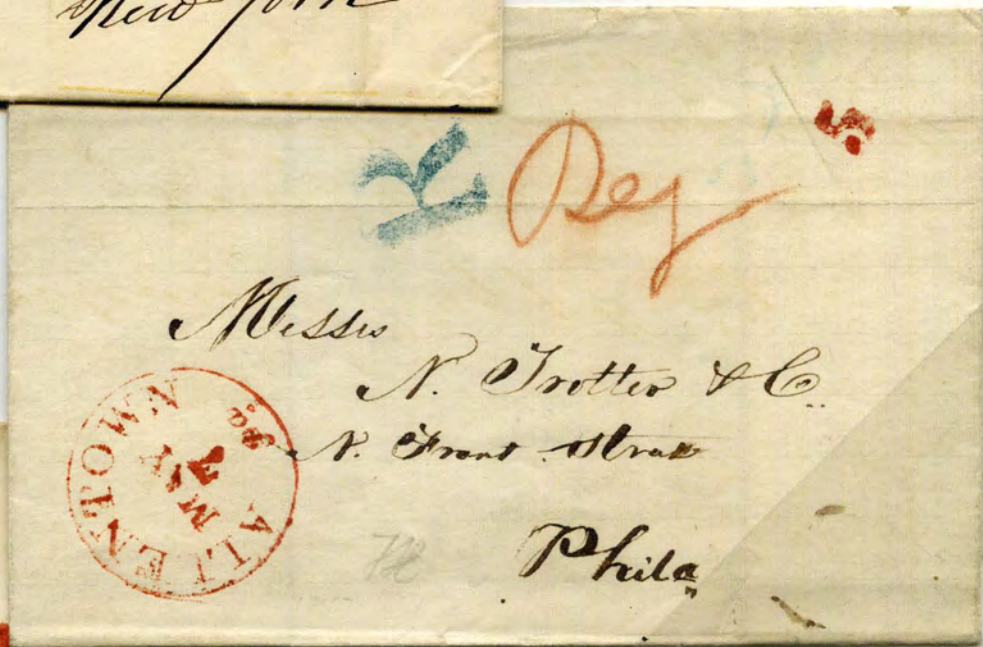 New York
R Reg 5
Messrs
N. Trotter & Co.
N. Front Street
Phila
ALLENTOWN Pa.
MAY
7